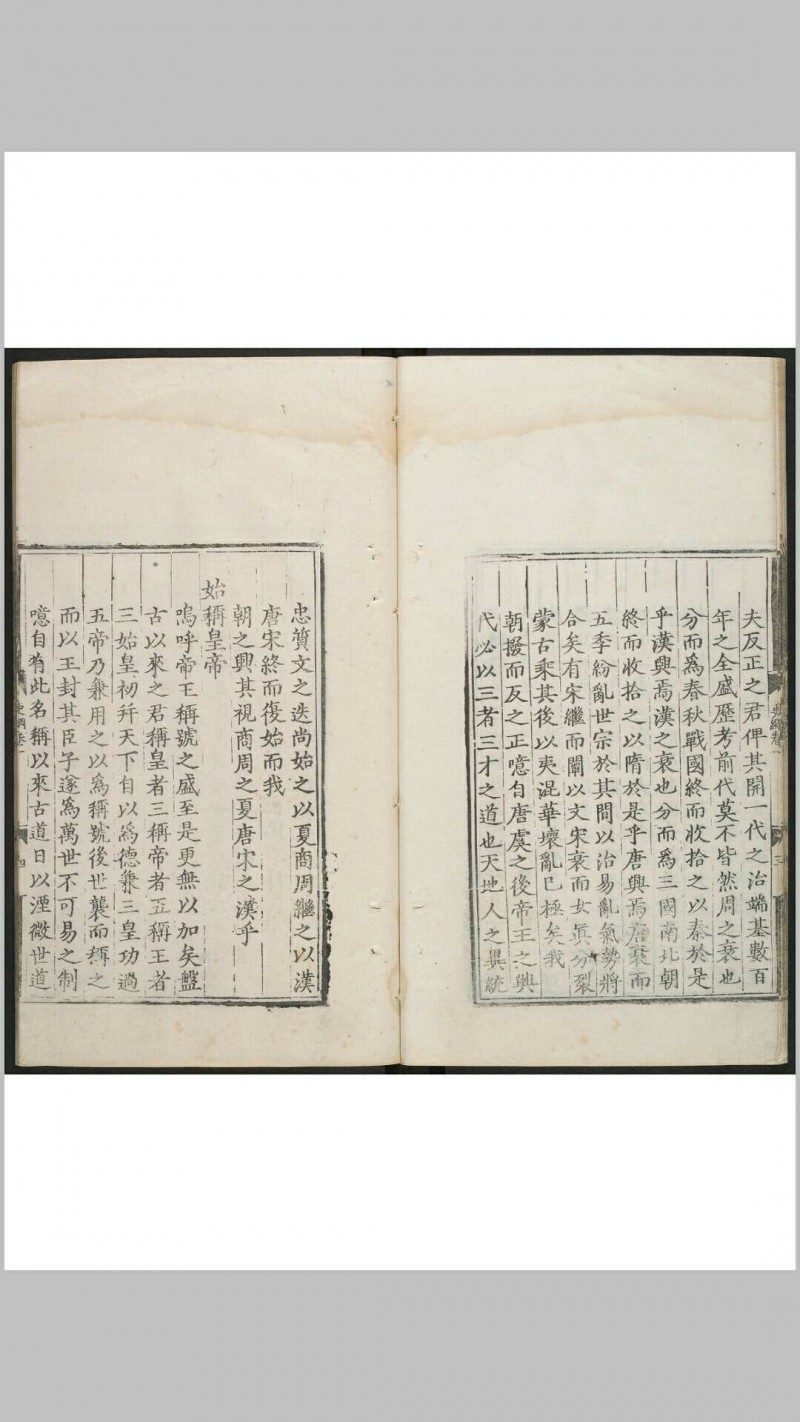 夫反正之君俾其開一代之治端基數百
年之全盛歷考前代莫不皆然周之衰也
分而爲春秋戰國終而收拾之以秦於是
乎漢興焉漢之衰也分而爲三國南北朝
終而收拾之以隋於是乎唐興焉唐衰而
五季紛亂世宗於其間以治易亂氣勢將
合矣有宋繼而闡以文宋衰而女眞分裂
蒙古乘其後以夷混華壞亂已極矣我
朝撥而反之正噫自唐虞之後帝王之興
代必以三者三才之道也天地人之異統
忠質文之迭尚始之以夏商周繼之以漢
唐宋終而復始而我
朝之興其視商周之夏唐宋之漢乎
始稱皇帝
嗚呼帝王稱號之盛至是更無以加矣盤
古以來之君稱皇者三稱帝者五稱王者
三始皇初幷天下自以爲德兼三皇功過
五帝乃兼用之以爲稱號後世襲而稱之
而以王封其臣子遂爲萬世不可易之制
噫自有此名稱以來古道日以湮微世道